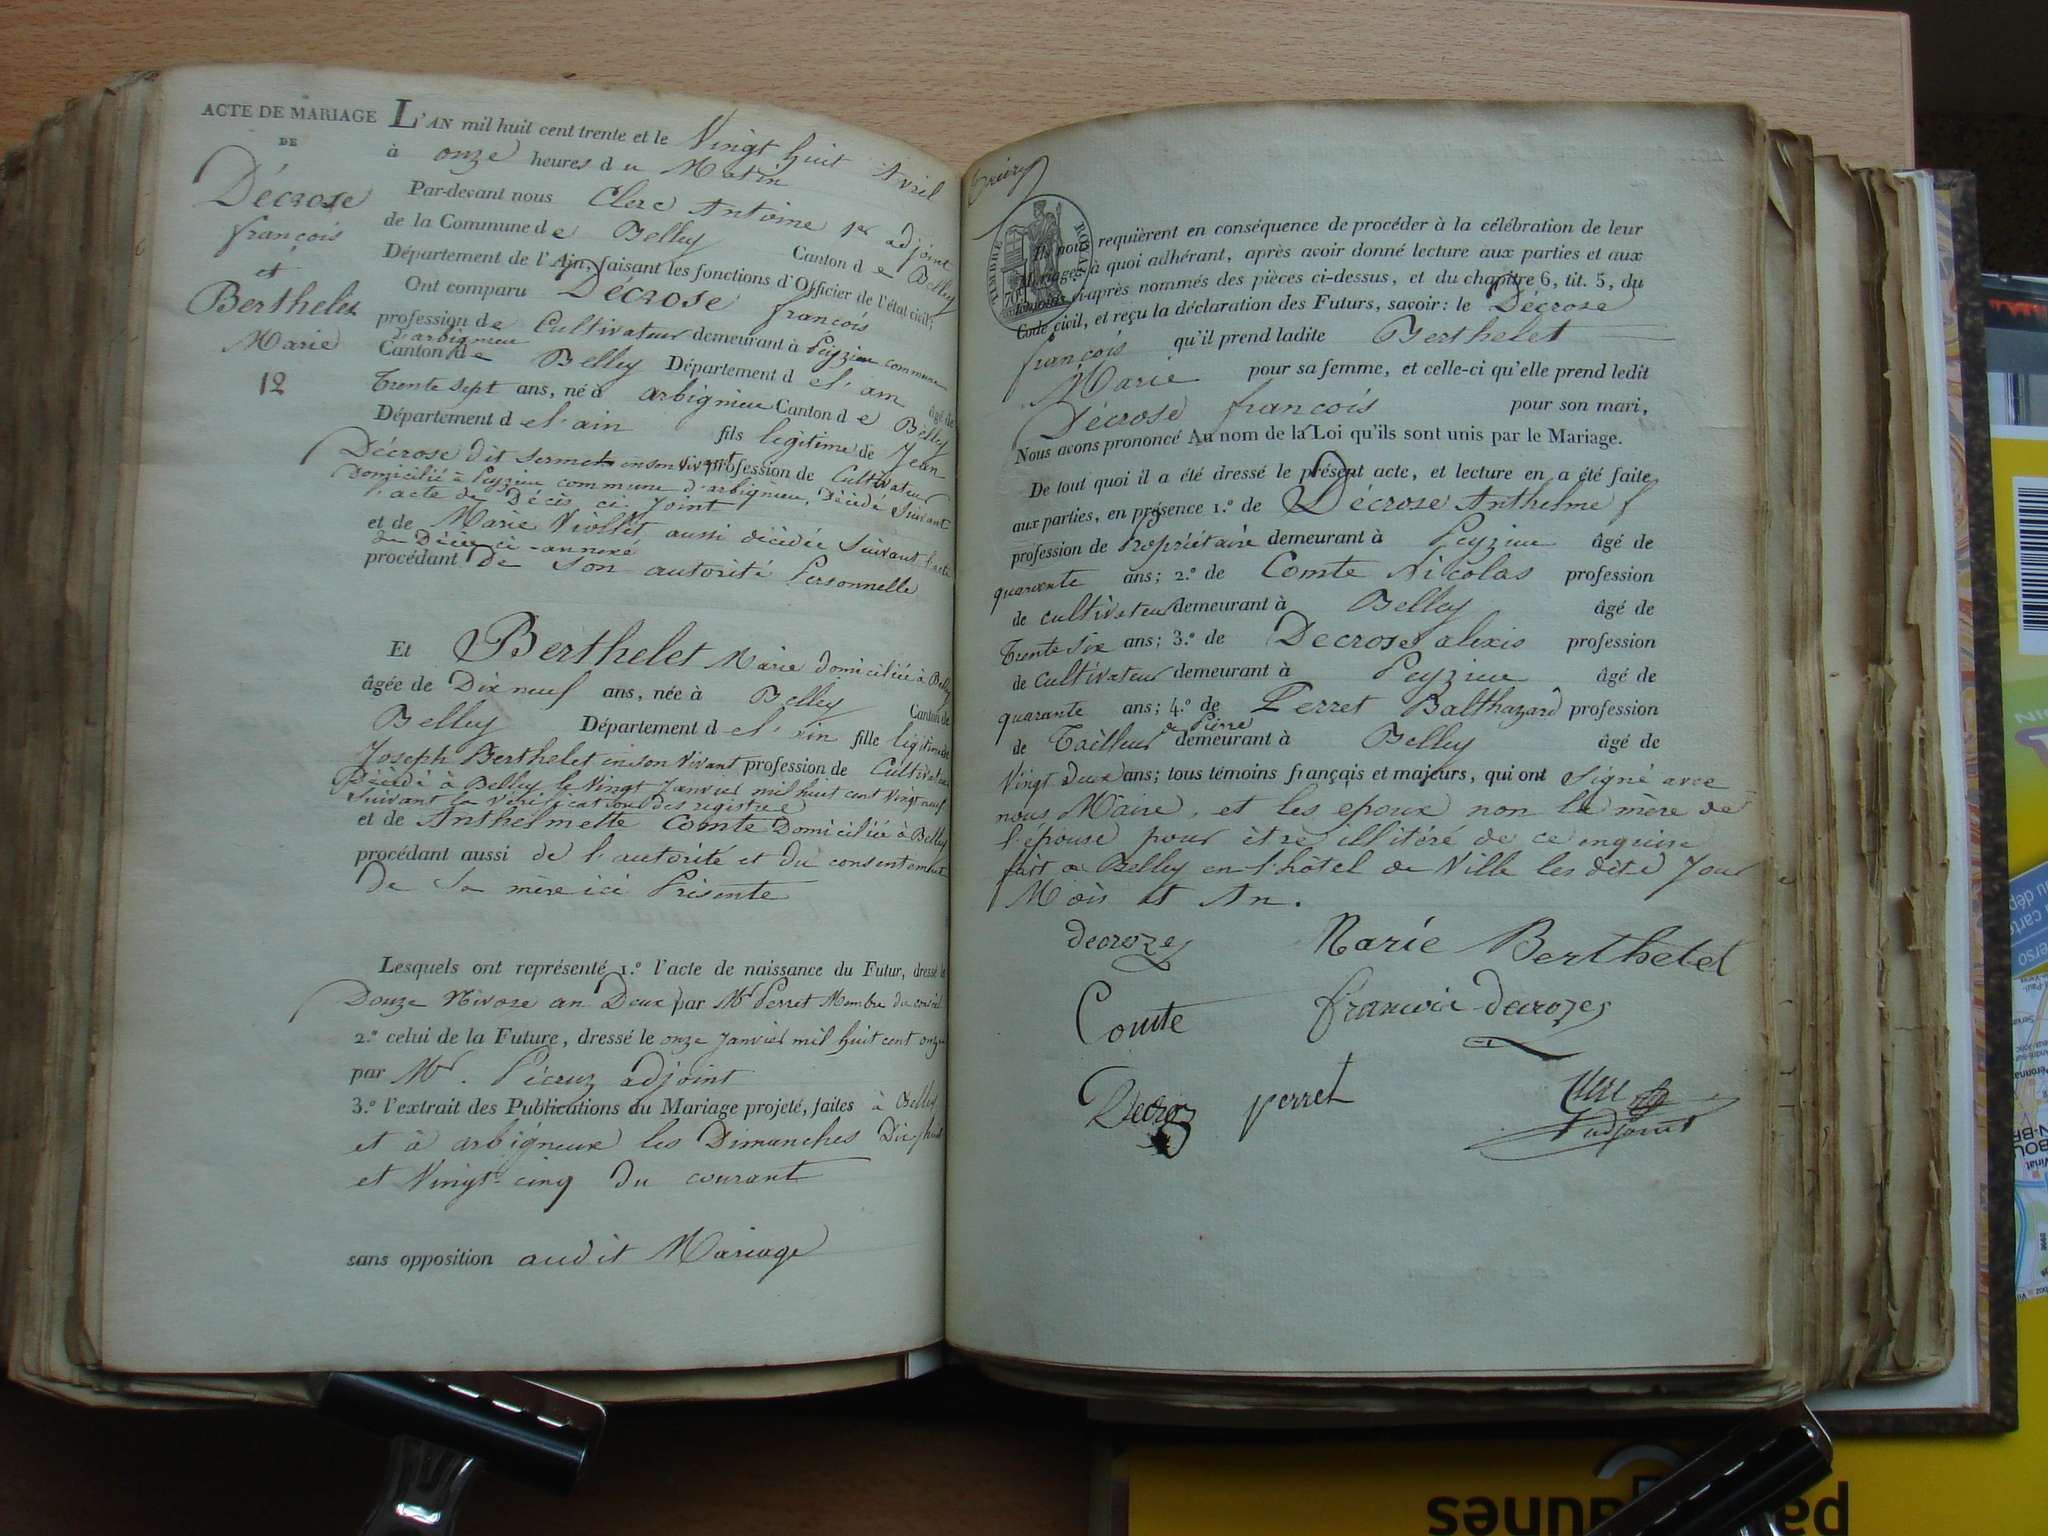 ACTE DE MARIAGE
DE
Décrose
françois
et
Berthelet
Marie
12
L'AN mil huit cent trente et le Vingt huit Avril
à onze heures du Matin
Par-devant nous Clerc Antoine 1er adjoint
de la Commune de Belley Canton de Belley
Département de l'Ain, faisant les fonctions d'Officier de l'état civil;
Ont comparu Décrose françois
profession de Cultivateur demeurant à Peyzieu commune
d'arbignieu
Canton de Belley Département de l'ain âgé de
Trente sept ans, né à arbignieu Canton de Belley
Département de l'ain fils légitime de Jean
Décrose dit sermet en son vivant profession de Cultivateur
Domicilié à Peyzieu commune d'arbignieu, Décédé suivant
l'acte de Décès ci joint
et de Marie Viollet, aussi décédée suivant l'acte
de Décès ci-annexé
procédant De Son autorité Personnelle
Et Berthelet Marie domiciliée à Belley
âgée de Dix neuf ans, née à Belley Canton de
Belley Département de l'Ain fille légitime de
Joseph Berthelet en son vivant profession de Cultivateur
Décédé à Belley le Vingt Janvier mil huit cent Vingt neuf
suivant la vérification des registres
et de Anthelmette Comte Domiciliée à Belley
procédant aussi de l'autorité et du consentement
De Sa mère ici Présente
Lesquels ont représenté 1.º l'acte de naissance du Futur, dressé le
Douze Nivose an Deux par Mr Perret Membre du conseil
2.º celui de la Future, dressé le onze Janvier mil huit cent onze
par Mr. Pécruz adjoint
3.º l'extrait des Publications du Mariage projeté, faites à Belley
et à arbigneux les Dimanches Dix huit
et Vingt-cinq du courant
sans opposition audit Mariage
TIMBRE ROYAL
70
Ils nous requièrent en conséquence de procéder à la célébration de leur
Mariage; à quoi adhérant, après avoir donné lecture aux parties et aux
témoins ci-après nommés des pièces ci-dessus, et du chapitre 6, tit. 5, du
Code civil, et reçu la déclaration des Futurs, savoir: le Décrose
françois qu'il prend ladite Berthelet
Marie pour sa femme, et celle-ci qu'elle prend ledit
Décrose françois pour son mari,
Nous avons prononcé Au nom de la Loi qu'ils sont unis par le Mariage.
De tout quoi il a été dressé le présent acte, et lecture en a été faite
aux parties, en présence 1.º de Décrose Anthelme f
profession de Propriétaire demeurant à Peyzieu âgé de
quarente ans; 2.º de Comte Nicolas profession
de cultivateur demeurant à Belley âgé de
Trente six ans; 3.º de Decrose alexis profession
de cultivateur demeurant à Peyzieu âgé de
quarante ans; 4.º de Perret Balthazard profession
de Tailleur de Pierre demeurant à Belley âgé de
Vingt Deux ans; tous témoins français et majeurs, qui ont signé avec
nous Maire, et les epoux non la mère de
l'épouse pour être illitéré de ce enquise
fait a Belley en l'hôtel de Ville les dits Jour
Mois et An.
decroze
Marie Berthelet
Comte
francois decrozes
Decroz
perret
Clerc
adjoint
pa aunes